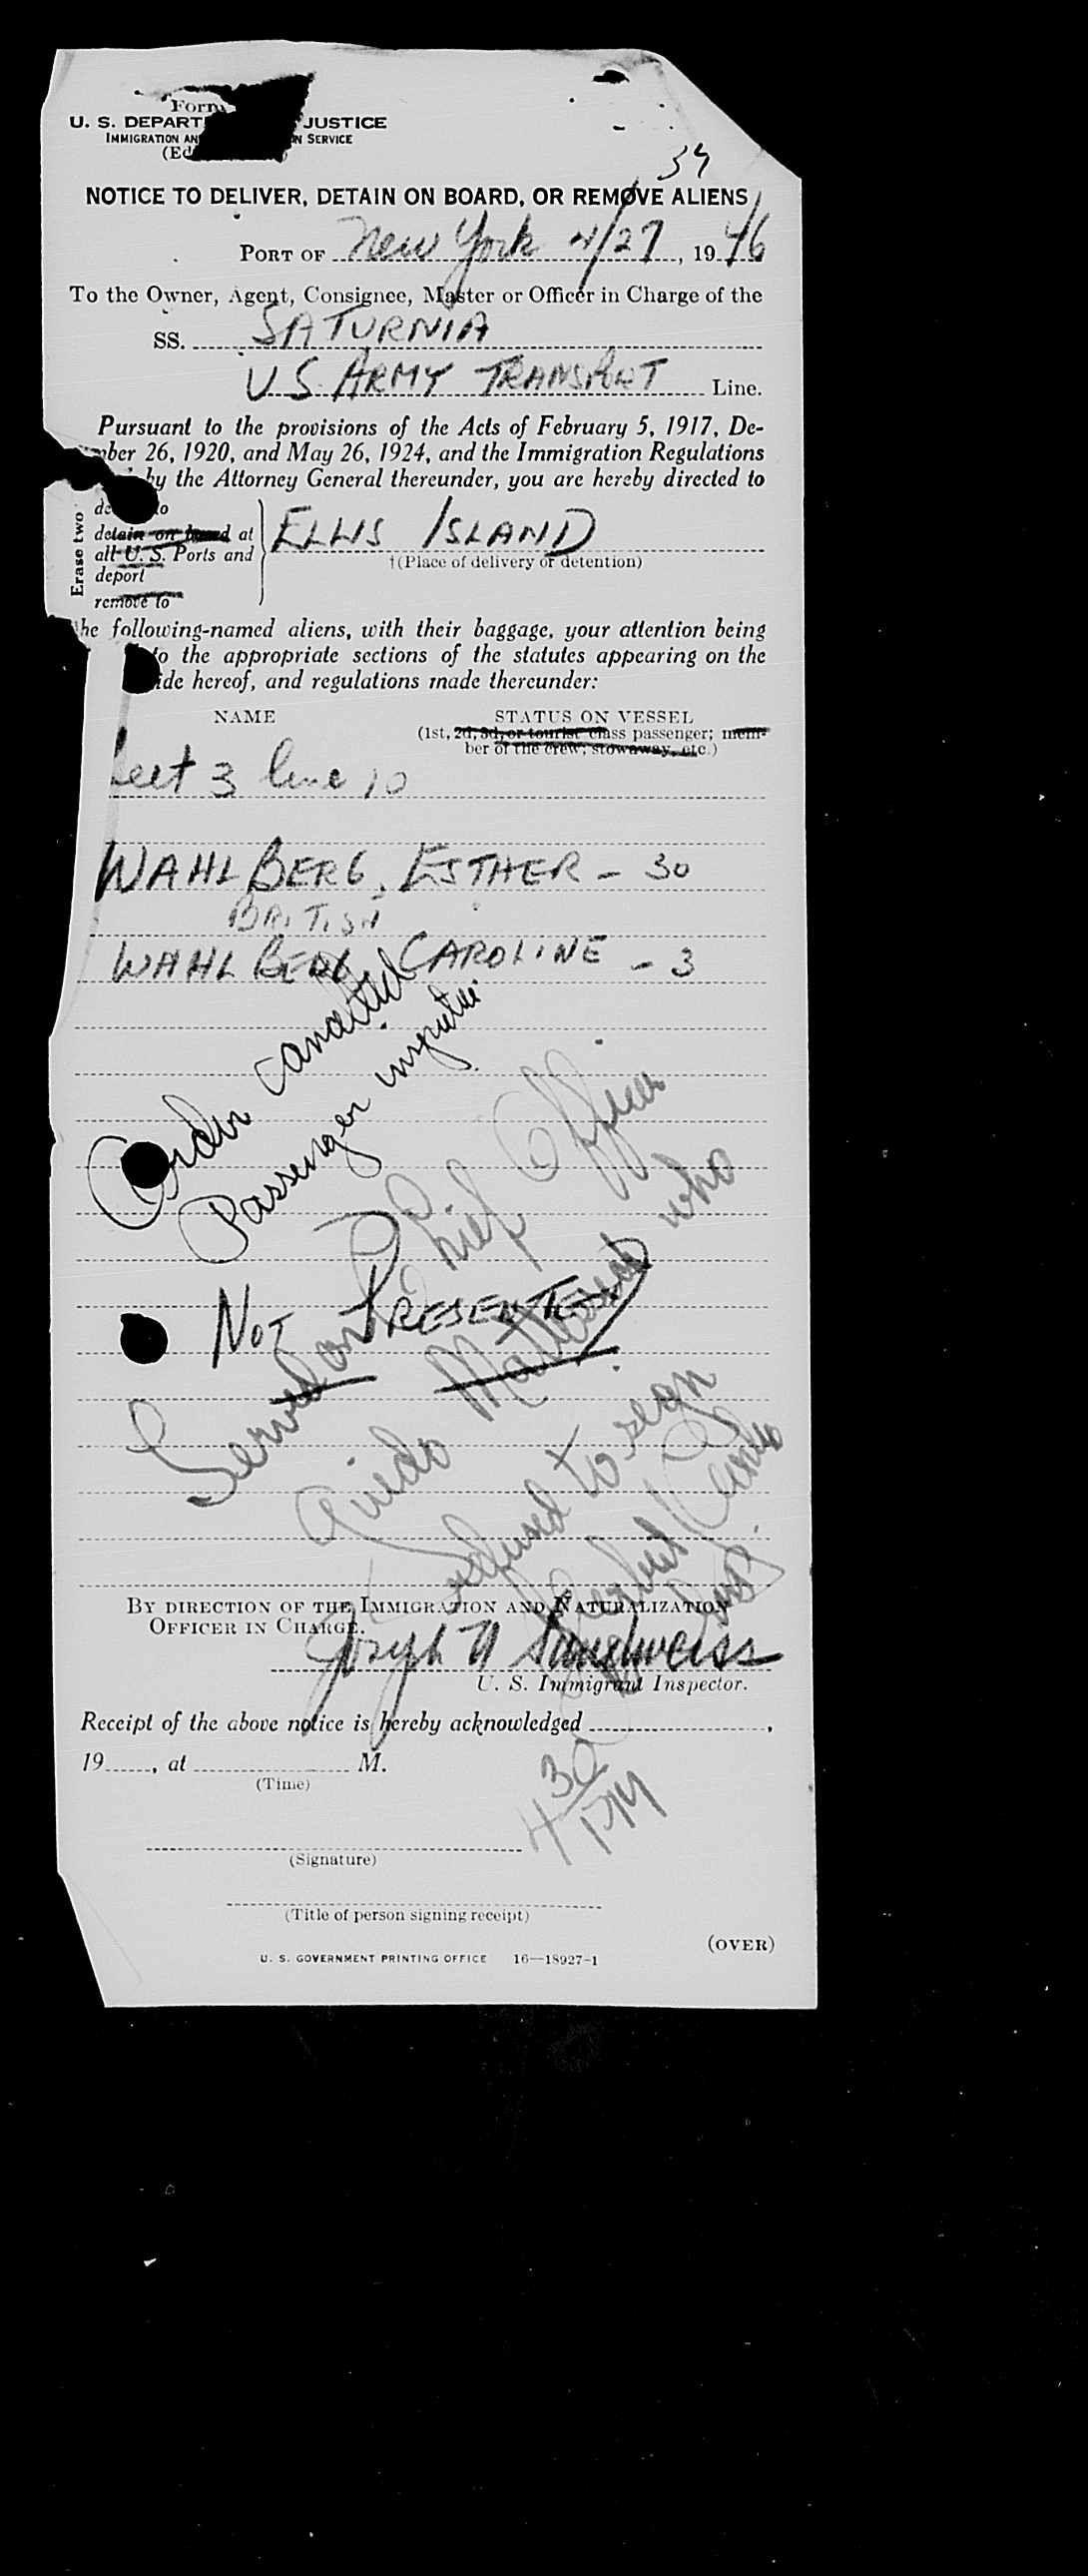 Form
U. S. DEPART JUSTICE
IMMIGRATION AN N SERVICE
(Ed )
34
NOTICE TO DELIVER, DETAIN ON BOARD, OR REMOVE ALIENS
PORT OF New York 4/27, 1946
To the Owner, Agent, Consignee, Master or Officer in Charge of the
SS. SATURNIA
U S ARMY TRANSPORT Line.
Pursuant to the provisions of the Acts of February 5, 1917, De-
ber 26, 1920, and May 26, 1924, and the Immigration Regulations
by the Attorney General thereunder, you are hereby directed to
Erase two
de to
detain on board at
all U. S. Ports and
deport
remove to
ELLIS ISLAND
†(Place of delivery or detention)
he following-named aliens, with their baggage, your attention being
to the appropriate sections of the statutes appearing on the
ide hereof, and regulations made thereunder:
NAME
STATUS ON VESSEL
(1st, 2d, 3d, or tourist class passenger; mem-
ber of the crew; stowaway, etc.)
eet 3 line 10
WAHLBERG, ESTHER - 30
BRITISH
WAHLBERG CAROLINE - 3
Order cancelled
Passenger
NOT PRESENTED
Served on Chief Officer
Guido who
refused to sign
BY DIRECTION OF THE IMMIGRATION AND NATURALIZATION
OFFICER IN CHARGE.
Joseph
U. S. Immigrant Inspector.
Receipt of the above notice is hereby acknowledged ,
19 , at M.
(Time)
4 30 PM
(Signature)
(Title of person signing receipt)
(OVER)
U. S. GOVERNMENT PRINTING OFFICE 16—18927-1